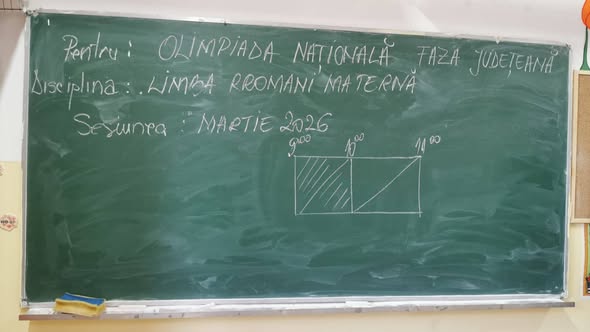 Pentru: OLIMPIADA NAȚIONALĂ FAZA JUDEȚEANĂ
Disciplina: LIMBA RROMANI MATERNĂ
Sesiunea: MARTIE 2026
9⁰⁰ 10⁰⁰ 14⁰⁰